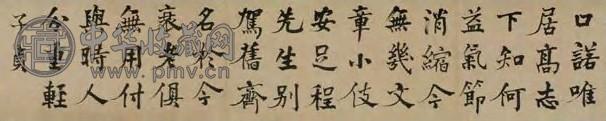 口諾唯
居高志
下知何
益氣節
消縮今
無幾文
章小伎
安足程
先生別
駕舊齊
名於今
衰老俱
無用付
與時人
分重輕
子貞
中华收藏网
www.pmv.cn